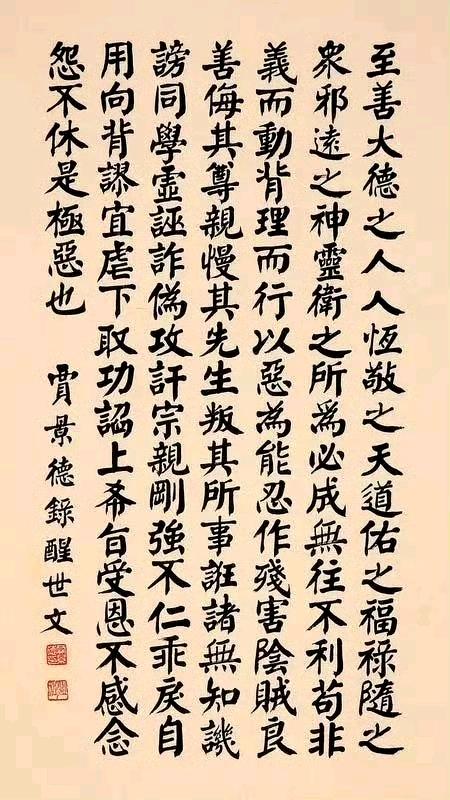 至善大德之人人恆敬之天道佑之福祿隨之
眾邪遠之神靈衛之所為必成無往不利苟非
義而動背理而行以惡為能忍作殘害陰賊良
善侮其尊親慢其先生叛其所事誑諸無知譏
謗同學虛誣詐偽攻訐宗親剛強不仁乖戾自
用向背謬宜虐下取功諂上希旨受恩不感念
怨不休是極惡也
賈景德錄醒世文